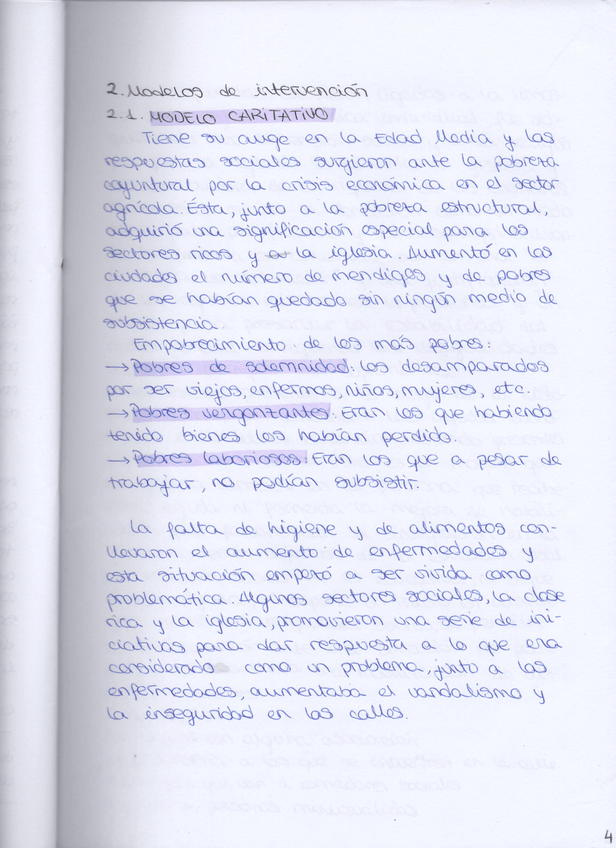 2. Modelos de intervención
2.1. MODELO CARITATIVO
Tiene su auge en la Edad Media y las
respuestas sociales surgieron ante la pobreza
coyuntural por la crisis económica en el sector
agrícola. Ésta, junto a la pobreza estructural,
adquirió una significación especial para los
sectores ricos y a la iglesia. Aumentó en las
ciudades el número de mendigos y de pobres
que se habían quedado sin ningún medio de
subsistencia.
Empobrecimiento de los más pobres:
→Pobres de solemnidad: los desamparados
por ser viejos, enfermos, niños, mujeres, etc.
→Pobres vergonzantes: Eran los que habiendo
tenido bienes los habían perdido.
→Pobres laboriosos: Eran los que a pesar de
trabajar, no podían subsistir.
La falta de higiene y de alimentos con-
llevaron el aumento de enfermedades y
esta situación empezó a ser vivida como
problemática. Algunos sectores sociales, la clase
rica y la iglesia, promovieron una serie de ini-
ciativas para dar respuesta a lo que era
considerado como un problema, junto a las
enfermedades, aumentaba el vandalismo y
la inseguridad en las calles.
4